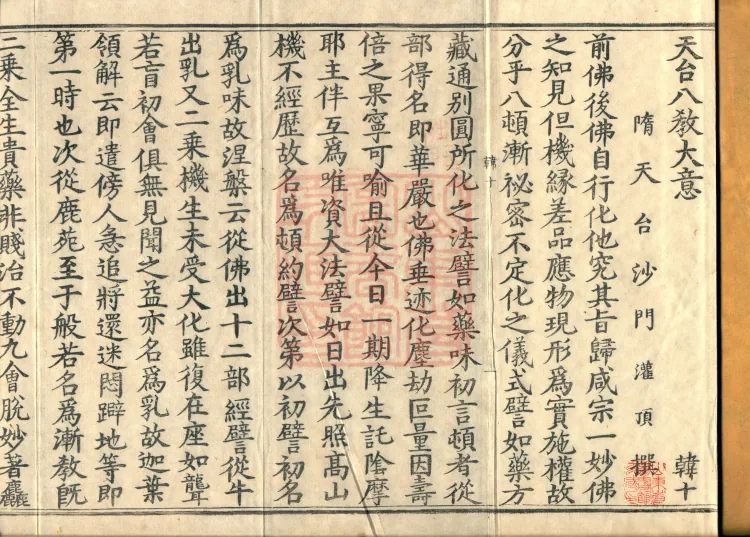 天台八敎大意 韓十
隋天台沙門灌頂撰
前佛後佛自行化他究其旨歸咸宗一妙佛
之知見但機緣差品應物現形爲實施權故
分乎八頓漸祕密不定化之儀式譬如藥方
韓十
藏通別圓所化之法譬如藥味初言頓者從
部得名即華嚴也佛垂迹化塵劫叵量因壽
倍之果寧可喻且從今日一期降生託陰摩
耶主伴互爲唯資大法譬如日出先照髙山
機不經歷故名爲頓約譬次第以初譬初名
爲乳味故涅槃云從佛出十二部經譬從牛
出乳又二乗機生未受大化雖復在座如聾
若盲初會俱無見聞之益亦名爲乳故迦葉
領解云即遣傍人急追將還迷悶躃地等即
第一時也次從鹿苑至于般若名爲漸教旣
二乗全生貴藥非賤治不動九會脫妙著麤